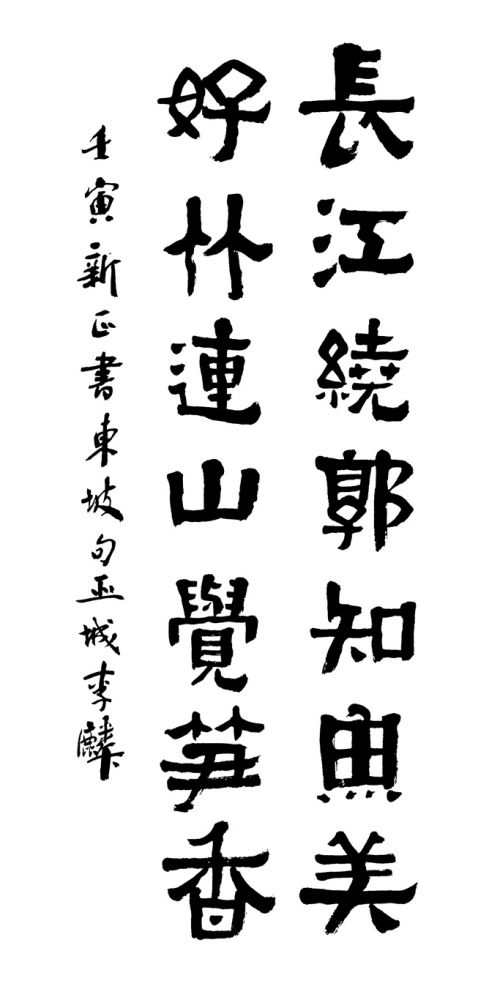 長江繞郭知魚美
好竹連山覺筍香
壬寅新正書東坡句丞城李麟